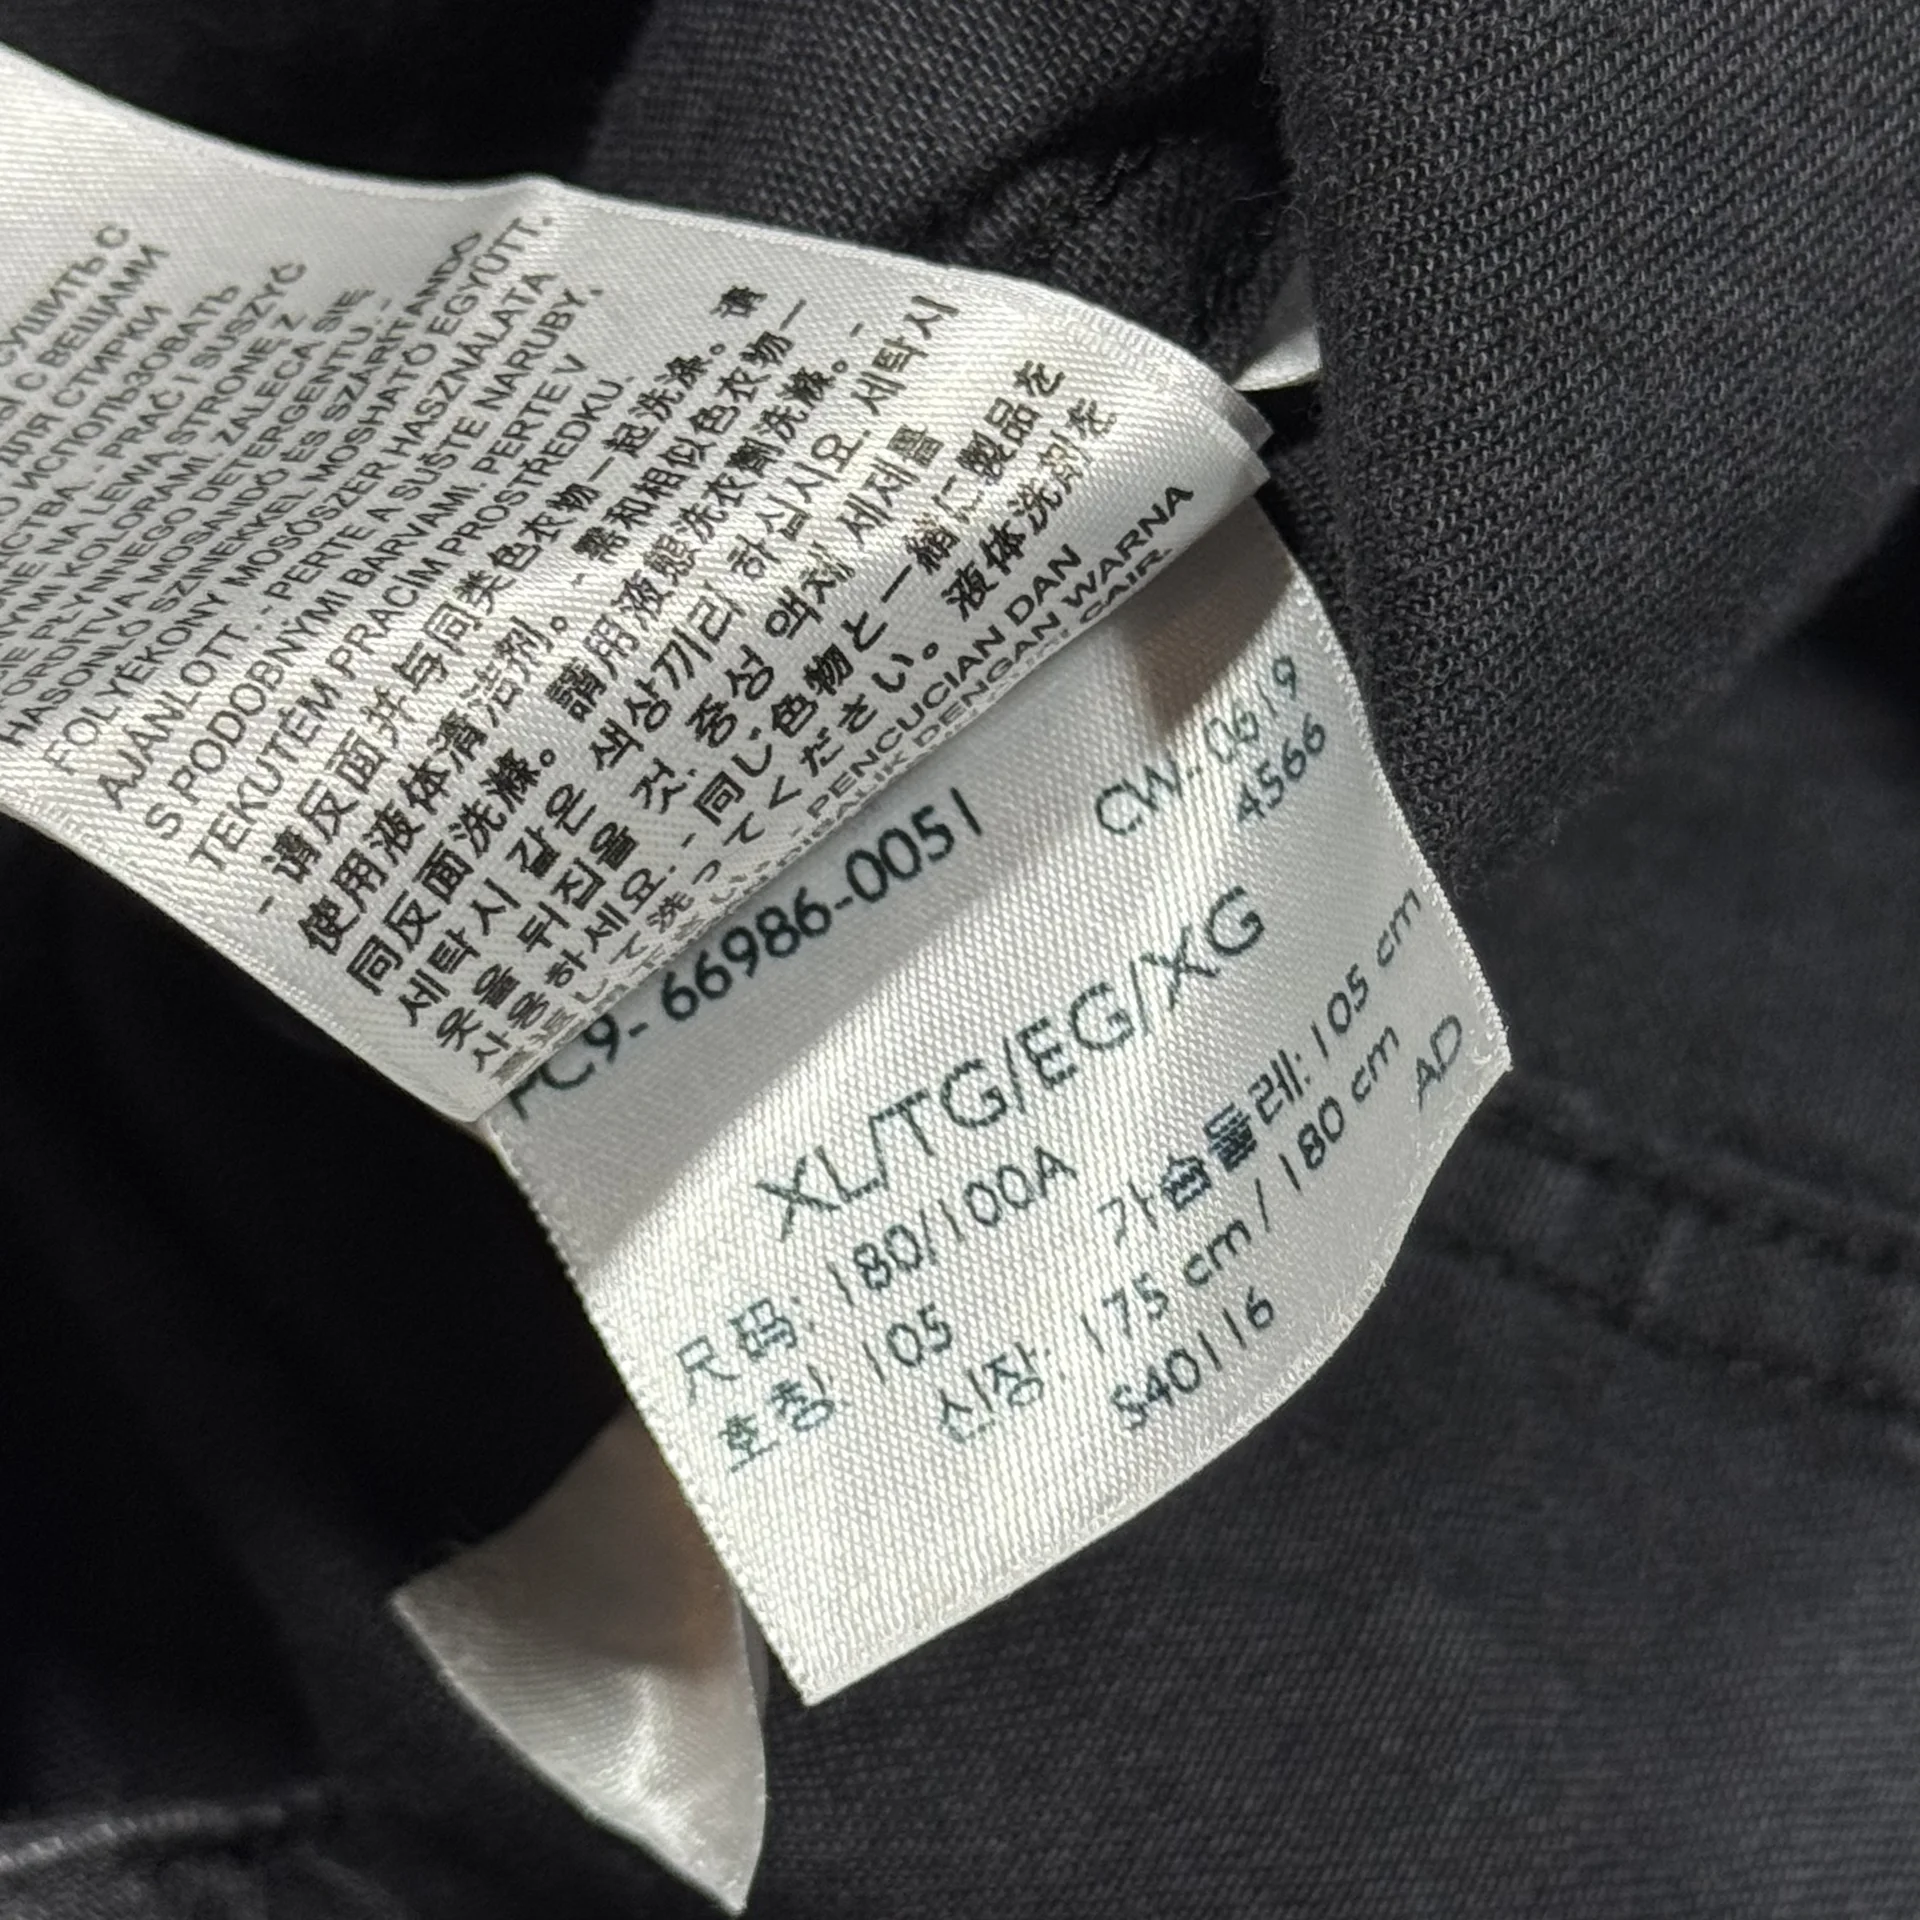 СУШИТЬ С
С ВЕЩАМИ
ДЛЯ СТИРКИ
ИСПОЛЬЗОВАТЬ
PRAĆ I SUSZYĆ
NA LEWĄ STRONĘ Z
KOLORAMI. ZALECA SIĘ
PŁYNNEGO DETERGENTU. -
MOSANDÓ ÉS SZÁRÍTANDÓ
HASONLÓ SZÍNEKKEL MOSHATÓ EGYÜTT.
FOLYÉKONY MOSÓSZER HASZNÁLATA
AJÁNLOTT. - PERTE A SUŠTE NARUBY,
S PODOBNÝMI BARVAMI. PERTE V
TEKUTÉM PRACÍM PROSTŘEDKU.
- 请反面并与同类色衣物一起洗涤。请
使用液体清洁剂。- 需和相似色衣物一
同反面洗滌。請用液態洗衣劑洗滌。-
세탁시 같은 색상끼리 하십시요. 세탁시
옷을 뒤집을 것. 중성 액체 세제를
사용하세요. - 同じ色物と一緒に製品を
して洗ってください。液体洗剤を
- PENCUCIAN DAN
DENGAN WARNA
CAIR.
C9-66986-0051
CW. 0619
4566
XL/TG/EG/XG
尺码: 180/100A
호칭 105 가슴둘레: 105 cm
신장: 175 cm / 180 cm
S40116 AD